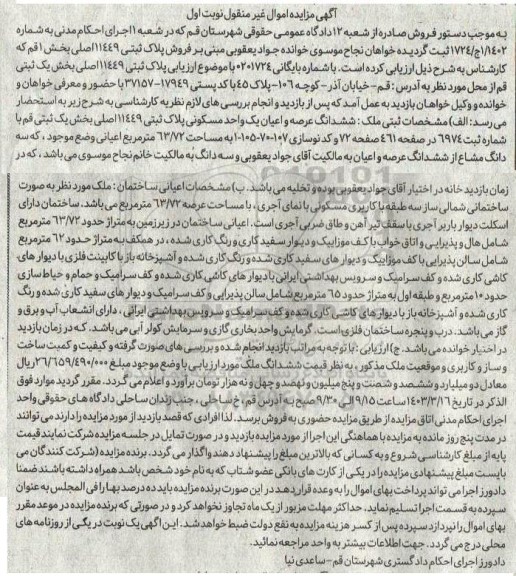 آگهی مزایده اموال غیر منقول نوبت اول
به موجب دستور فروش صادره از شعبه ۱۲ دادگاه عمومی حقوقی شهرستان قم که در شعبه ۱ اجرای احکام مدنی به شماره
۱۷۲۴/ج۱/۱۴۰۲ ثبت گردیده خواهان نجاح موسوی خوانده جواد یعقوبی مبنی بر فروش پلاک ثبتی ۱۱۴۴۹ اصلی بخش ۱ قم که
کارشناس به شرح ذیل ارزیابی کرده است. با شماره بایگانی ۰۲۰۱۷۲۴ با موضوع ارزیابی پلاک ثبتی ۱۱۴۴۹ اصلی بخش یک ثبتی
قم از محل مورد نظر به آدرس : قم- خیابان آذر - کوچه ۱۰۶- پلاک ۴۵ با کد پستی ۱۷۹۴۹-۳۷۱۵۷ با حضور و معرفی خواهان و
خوانده و وکیل خواهان بازدید به عمل آمد که پس از بازدید و انجام بررسی های لازم نظریه کارشناسی به شرح زیر به استحضار
می رسد: الف) مشخصات ثبتی ملک : ششدانگ عرصه و اعیان یک واحد مسکونی پلاک ثبتی ۱۱۴۴۹ اصلی بخش یک ثبتی قم با
شماره ثبت ۶۹۷۴ در صفحه ۴۶۱ صفحه ۷۲ و کد نوسازی ۱۰۷-۷۰-۱۰۵-۱ به مساحت ۶۳/۷۲ مترمربع اعیانی وضع موجود ، که سه
دانگ مشاع از ششدانگ عرصه و اعیان به مالکیت آقای جواد یعقوبی و سه دانگ به مالکیت خانم نجاح موسوی می باشد ، که در
زمان بازدید خانه در اختیار آقای جواد یعقوبی بوده و تخلیه می باشد. ب) مشخصات اعیانی ساختمان : ملک مورد نظر به صورت
ساختمانی شمالی ساز سه طبقه با کاربری مسکونی با نمای آجری ، با مساحت عرصه ۶۳/۷۲ مترمربع می باشد. ساختمان دارای
اسکلت دیوار باربر آجری با سقف تیر آهن و طاق ضربی آجری است. اعیانی ساختمان در زیرزمین به متراژ حدود ۶۳/۷۲ مترمربع
شامل هال و پذیرایی و اتاق خواب با کف موزاییک و دیوار سفید کاری و رنگ کاری شده ، در همکف به متراژ حدود ۶۲ مترمربع
شامل سالن پذیرایی با کف موزاییک و دیوار های سفید کاری شده و رنگ کاری شده و آشپزخانه باز با کابینت فلزی با دیوار های
کاشی کاری شده و کف سرامیک و سرویس بهداشتی ایرانی با دیوار های کاشی کاری شده و کف سرامیک و حمام و حیاط سازی
حدود ۱۰ مترمربع و طبقه اول به متراژ حدود ۶۵ مترمربع شامل سالن پذیرایی و کف سرامیک و دیوار های سفید کاری شده و رنگ
کاری شده و آشپزخانه باز با دیوار های کاشی کاری شده و کف سرامیک و سرویس بهداشتی ایرانی ، دارای انشعاب آب و برق و
گاز می باشد. درب و پنجره ساختمان فلزی است. گرمایش واحد بخاری گازی و سرمایش کولر آبی می باشد. که در زمان بازدید
در اختیار خوانده می باشد. ج) ارزیابی : با توجه به مراتب بازدید انجام شده و بررسی های صورت گرفته و کیفیت و کمیت ساخت
و ساز و کاربری و موقعیت ملک مذکور ، به نظر قیمت ششدانگ ملک مورد ارزیابی با وضع موجود مبلغ ۲۶/۶۵۹/۴۹۰/۰۰۰ ریال
معادل دو میلیارد و ششصد و شصت و پنج میلیون و نهصد و چهل و نه هزار تومان برآورد و اعلام می گردد. مقرر گردید موارد فوق
الذکر در تاریخ ۱۴۰۳/۳/۱۶ ساعت ۹/۱۵ الی ۹/۳۰ صبح به آدرس قم ، خ ساحلی ، جنب زندان ساحلی دادگاه های حقوقی واحد
اجرای احکام مدنی اتاق مزایده از طریق مزایده حضوری به فروش برسد. لذا افرادی که قصد بازدید از مورد مزایده را دارند می توانند
در مدت پنج روز مانده به مزایده با هماهنگی این اجرا از مورد مزایده بازدید و در صورت تمایل در جلسه مزایده شرکت نمایند قیمت
پایه از مبلغ کارشناسی شروع و به کسانی که بالاترین مبلغ را پیشنهاد دهند واگذار می گردد. برنده مزایده (شرکت کنندگان می
بایست مبلغ پیشنهادی مزایده را در یکی از کارت های بانکی عضو شتاب که به نام خود شخص باشد همراه داشته باشند ضمنا
دادورز اجرا می تواند پرداخت بهای اموال را به وعده قرار دهد در این صورت برنده مزایده باید ده درصد بها را فی المجلس به عنوان
سپرده به قسمت اجرا تسلیم نماید. حداکثر مهلت مزبور از یک ماه تجاوز نخواهد کرد و در صورتی که برنده مزایده در موعد مقرر
بهای اموال را نپردازد سپرده پس از کسر هزینه مزایده به نفع دولت ضبط خواهد شد. این آگهی یک نوبت در یکی از روزنامه های
محلی درج می گردد. جهت اطلاعات بیشتر به واحد مراجعه نمائید.
دادورز اجرای احکام دادگستری شهرستان قم-ساعدی نیا